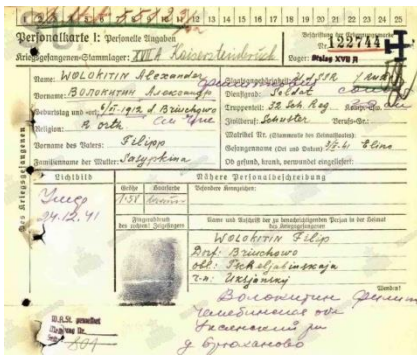 1 2 3 10 11 12 13 14 15 16 17 18 19 20 21 22 23 24 25
Personalkarte I: Personelle Angaben
Kriegsgefangenen-Stammlager: XVII A Kaisersteinbruch
Beschriftung der Erkennungsmarke
Nr. 122744
Lager: Stalag XVII A
Des Kriegsgefangenen
Name: WOLOKITIN Alexander
Vorname: Волокитин Александр
Geburtstag und -ort: 1912 d. Briuchowo
Religion: R. orth
Vorname des Vaters: Filipp
Familienname der Mutter: Pasypkina
Staatsangehörigkeit:
Dienstgrad: Soldat
Truppenteil: 52 Sch. Reg. Komp. usw.:
Zivilberuf: Schuster Berufs-Gr.:
Matrikel Nr. (Stammrolle des Heimatstaates):
Gefangennahme (Ort und Datum): Elina
Ob gesund, krank, verwundet eingeliefert:
Lichtbild
Nähere Personalbeschreibung
Größe Haarfarbe Besondere Kennzeichen:
1.58 braun
Умер
24.12.41
Fingerabdruck
des rechten! Zeigefingers
Name und Anschrift der zu benachrichtigenden Person in der Heimat
des Kriegsgefangenen
WOLOKITIN Filip
Dorf: Briuchowo
obl: Tscheljabinskaja
r-n: Uksjanskij
Wenden!
Волокитин Филип
Челябинская обл
Уксянский рн
д Брюханово